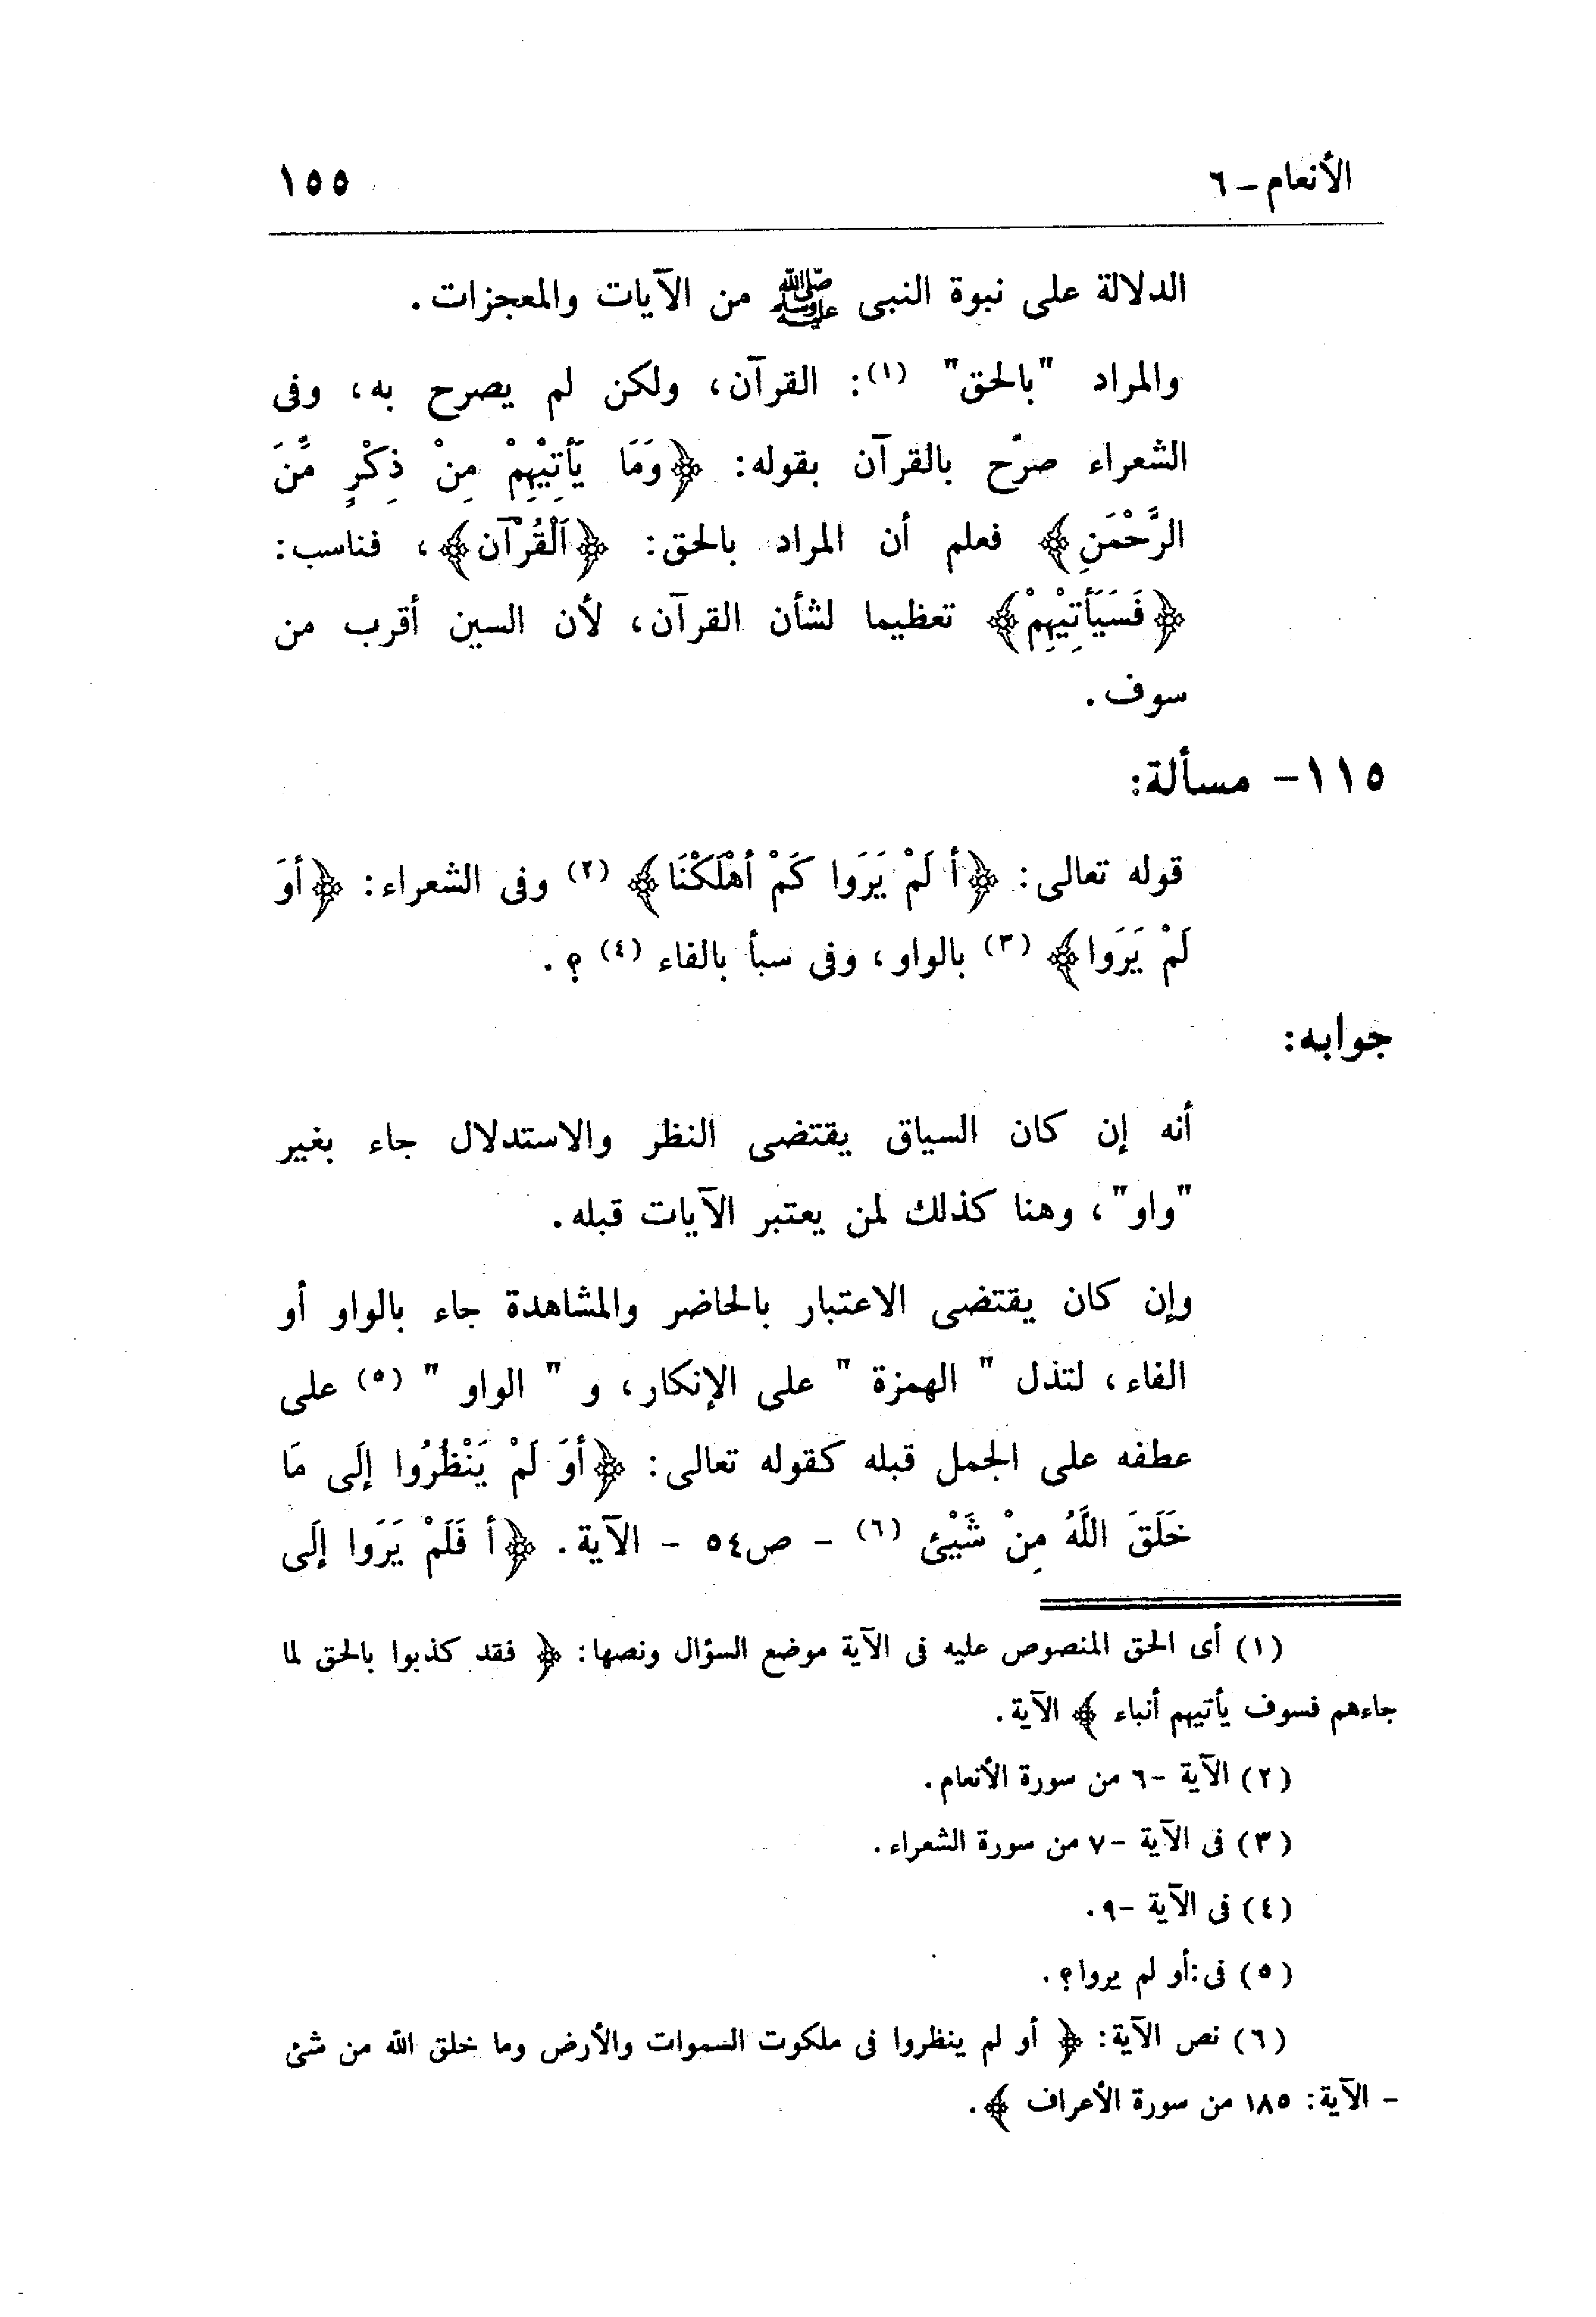 الأنعام - ٦ ١٥٥
الدلالة على نبوة النبى ﷺ من الآيات والمعجزات.
والمراد "بالحق" (١): القرآن، ولكن لم يصرح به، وفى
الشعراء صرّح بالقرآن بقوله: ﴿وَمَا يَأتِيْهِمْ مِنْ ذِكْرٍ مَّنَ
الرَّحْمَنِ﴾ فعلم أن المراد بالحق: ﴿اَلْقُرْآن﴾، فناسب:
﴿فَسَيَأتِيْهِمْ﴾ تعظيما لشأن القرآن، لأن السين أقرب من
سوف.
١١٥- مسألة:
قوله تعالى: ﴿أ لَمْ يَرَوا كَمْ أهْلَكْنَا﴾ (٢) وفى الشعراء: ﴿أوَ
لَمْ يَرَوا﴾ (٣) بالواو، وفى سبأ بالفاء (٤) ؟.
جوابه:
أنه إن كان السياق يقتضى النظر والاستدلال جاء بغير
"واو"، وهنا كذلك لمن يعتبر الآيات قبله.
وإن كان يقتضى الاعتبار بالحاضر والمشاهدة جاء بالواو أو
الفاء، لتذل " الهمزة " على الإنكار، و " الواو " (٥) على
عطفه على الجمل قبله كقوله تعالى: ﴿أوَ لَمْ يَنْظُرُوا إلَى مَا
خَلَقَ اللَّهُ مِنْ شَيْئٍ (٦) - ص٥٤ - الآية. ﴿أ فَلَمْ يَرَوا إلَى
(١) أى الحق المنصوص عليه فى الآية موضع السؤال ونصها: ﴿ فقد كذبوا بالحق لما
جاءهم فسوف يأتيهم أنباء ﴾ الآية.
(٢) الآية -٦ من سورة الأنعام.
(٣) فى الآية -٧ من سورة الشعراء.
(٤) فى الآية -٩.
(٥) فى:أو لم يروا؟.
(٦) نص الآية: ﴿ أو لم ينظروا فى ملكوت السموات والأرض وما خلق الله من شئ
- الآية: ١٨٥ من سورة الأعراف ﴾.